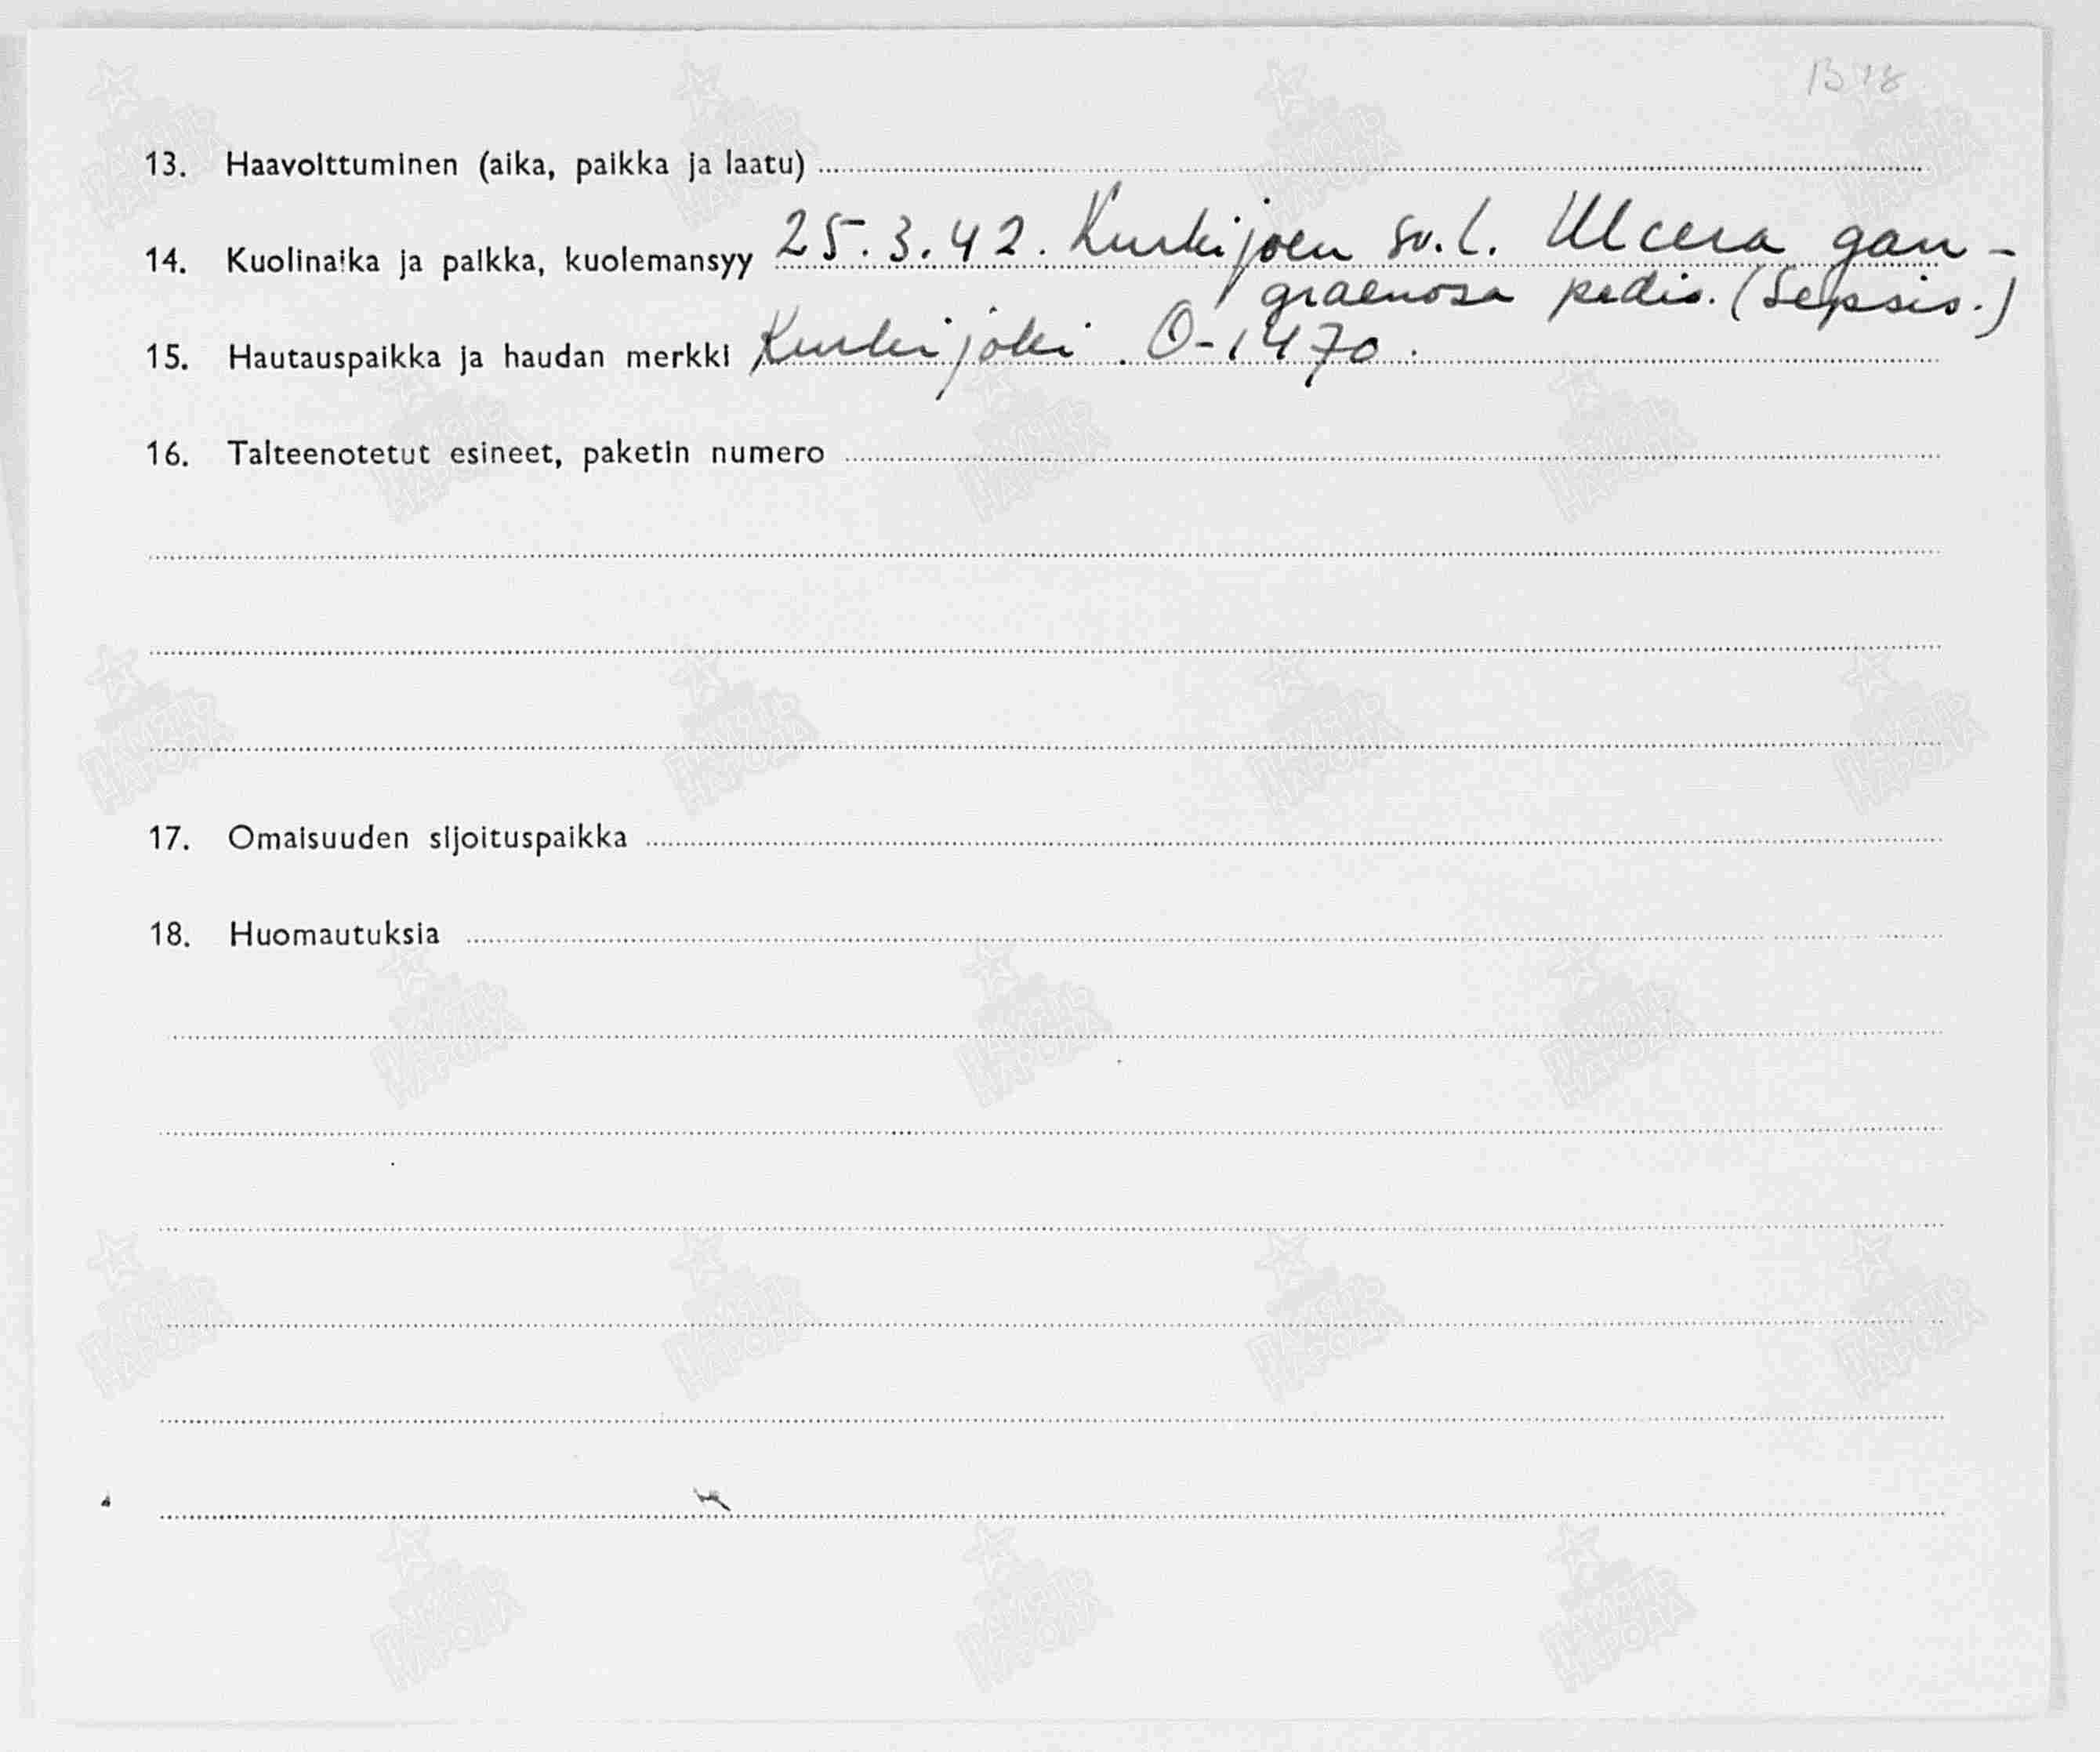 B 18
13. Haavoittuminen (aika, paikka ja laatu)
14. Kuolinaika ja paikka, kuolemansyy 25.3.42. Kurkijoen sv.l. Ulcera gan-
graenosa pedis. (Sepsis.)
15. Hautauspaikka ja haudan merkki Kurkijoki. O-1470.
16. Talteenotetut esineet, paketin numero
17. Omaisuuden sijoituspaikka
18. Huomautuksia
ПАМЯТЬ
НАРОДА